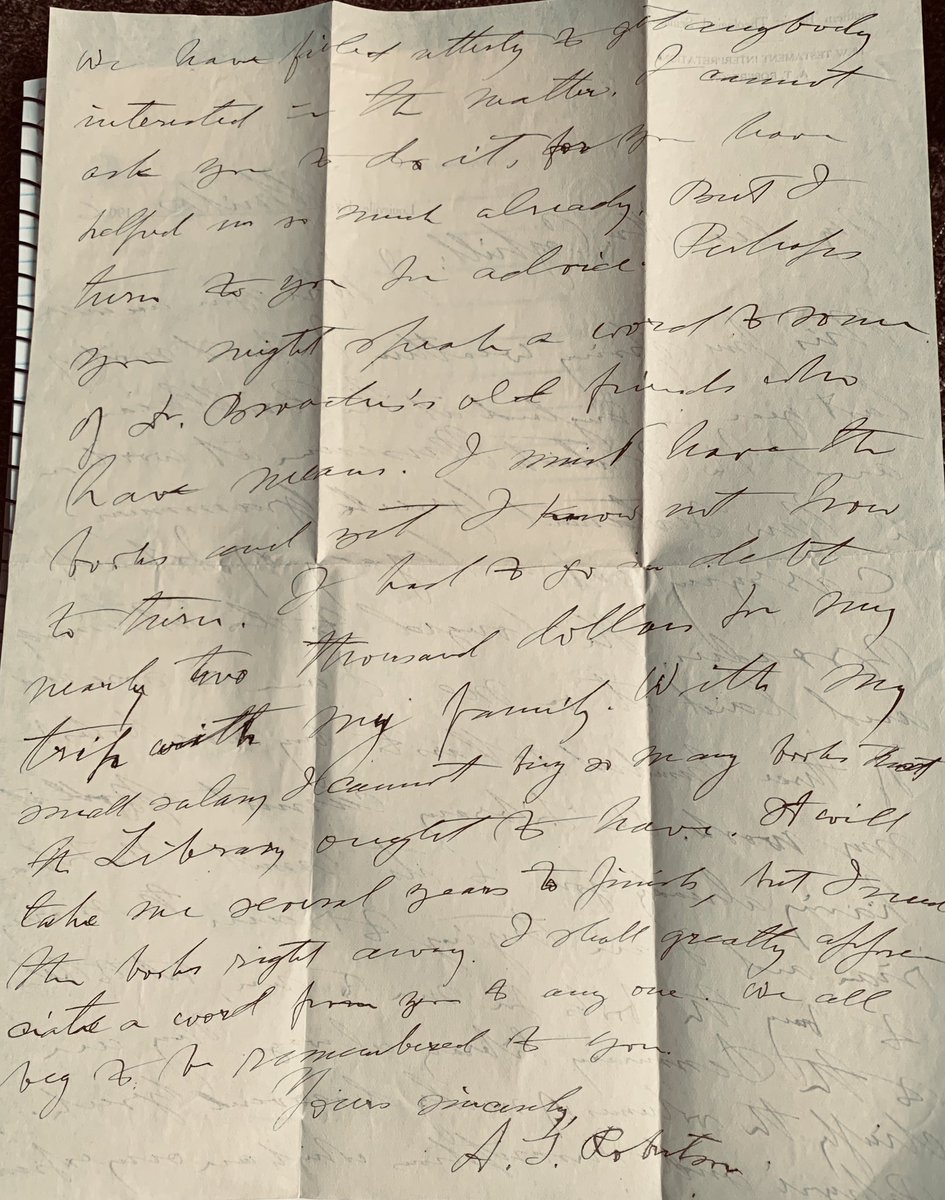 We have failed utterly to get anybody
interested in the matter. I cannot
ask you to do it, for you have
helped us so much already. But I
turn to you for advice. Perhaps
you might speak a word to some
of Dr. Broadus's old friends who
have means. I must have the
books and yet I know not how
to turn. I had to go in debt
nearly two thousand dollars for my
trip with my family. With my
small salary I cannot buy so many books that
the Library ought to have. It will
take me several years to finish, but I need
the books right away. I shall greatly appre
ciate a word from you to any one. We all
beg to be remembered to you.
Yours sincerely,
A. T. Robertson.